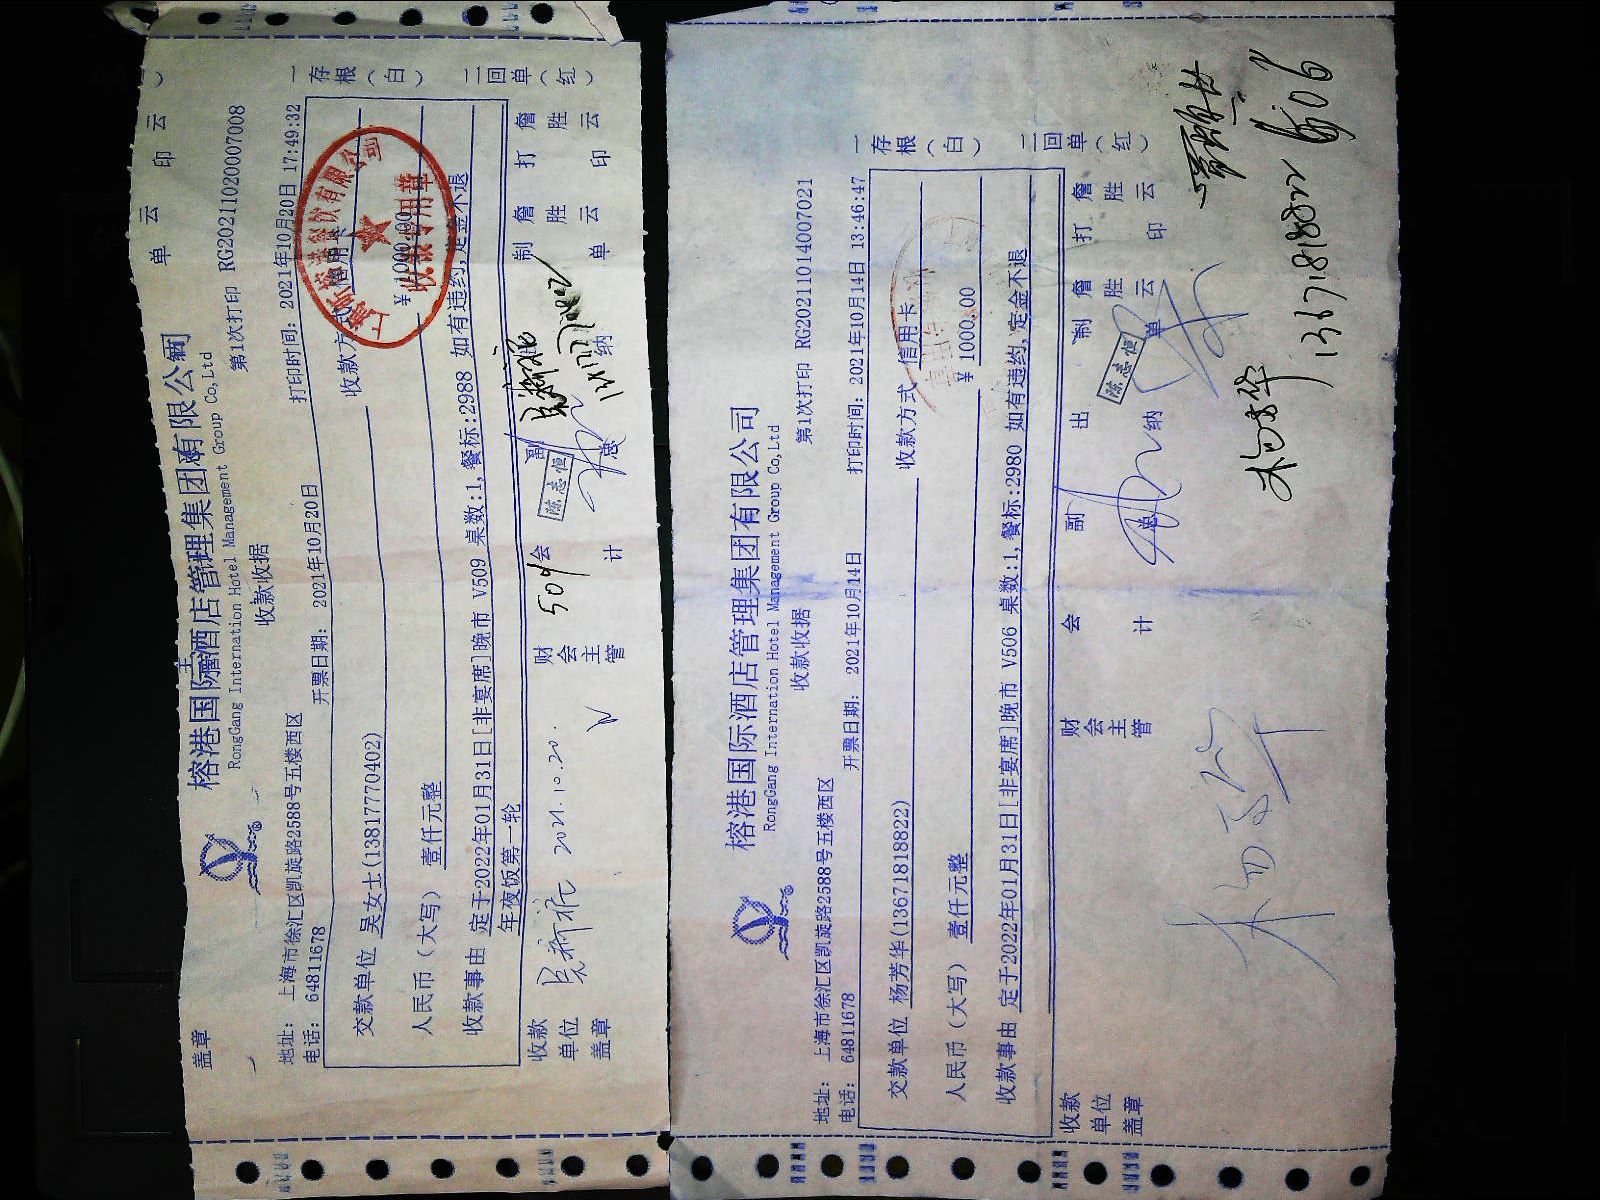 盖章
单 云 印 云 )
榕港国际酒店管理集团有限公司
RongGang International Hotel Management Group Co,Ltd
收款收据
第1次打印 RG20211020007008
地址: 上海市徐汇区凯旋路2588号五楼西区
电话: 64811678
开票日期: 2021年10月20日
打印时间: 2021年10月20日 17:49:32
交款单位 吴女士(13817770402)
收款方式 信用卡
人民币(大写) 壹仟元整
¥ 1000.00
收款事由 定于2022年01月31日[非宴席]晚市 V509 桌数:1,餐标:2988 如有违约,定金不退
年夜饭第一轮
一存根(白)
二回单(红)
收款专用章
收款单位盖章
2021.10.20.
财会主管
509
会计
副总
陈志恒
纳
制单
詹胜云
打印
詹胜云
榕港国际酒店管理集团有限公司
RongGang International Hotel Management Group Co,Ltd
收款收据
第1次打印 RG20211014007021
地址: 上海市徐汇区凯旋路2588号五楼西区
电话: 64811678
开票日期: 2021年10月14日
打印时间: 2021年10月14日 13:46:47
交款单位 杨芳华(13671818822)
收款方式 信用卡
人民币(大写) 壹仟元整
¥ 1000.00
收款事由 定于2022年01月31日[非宴席]晚市 V506 桌数:1,餐标:2980 如有违约,定金不退
一存根(白)
二回单(红)
收款单位盖章
财会主管
会计
副总
出纳
陈志恒
制单
詹胜云
打印
詹胜云
13671818822